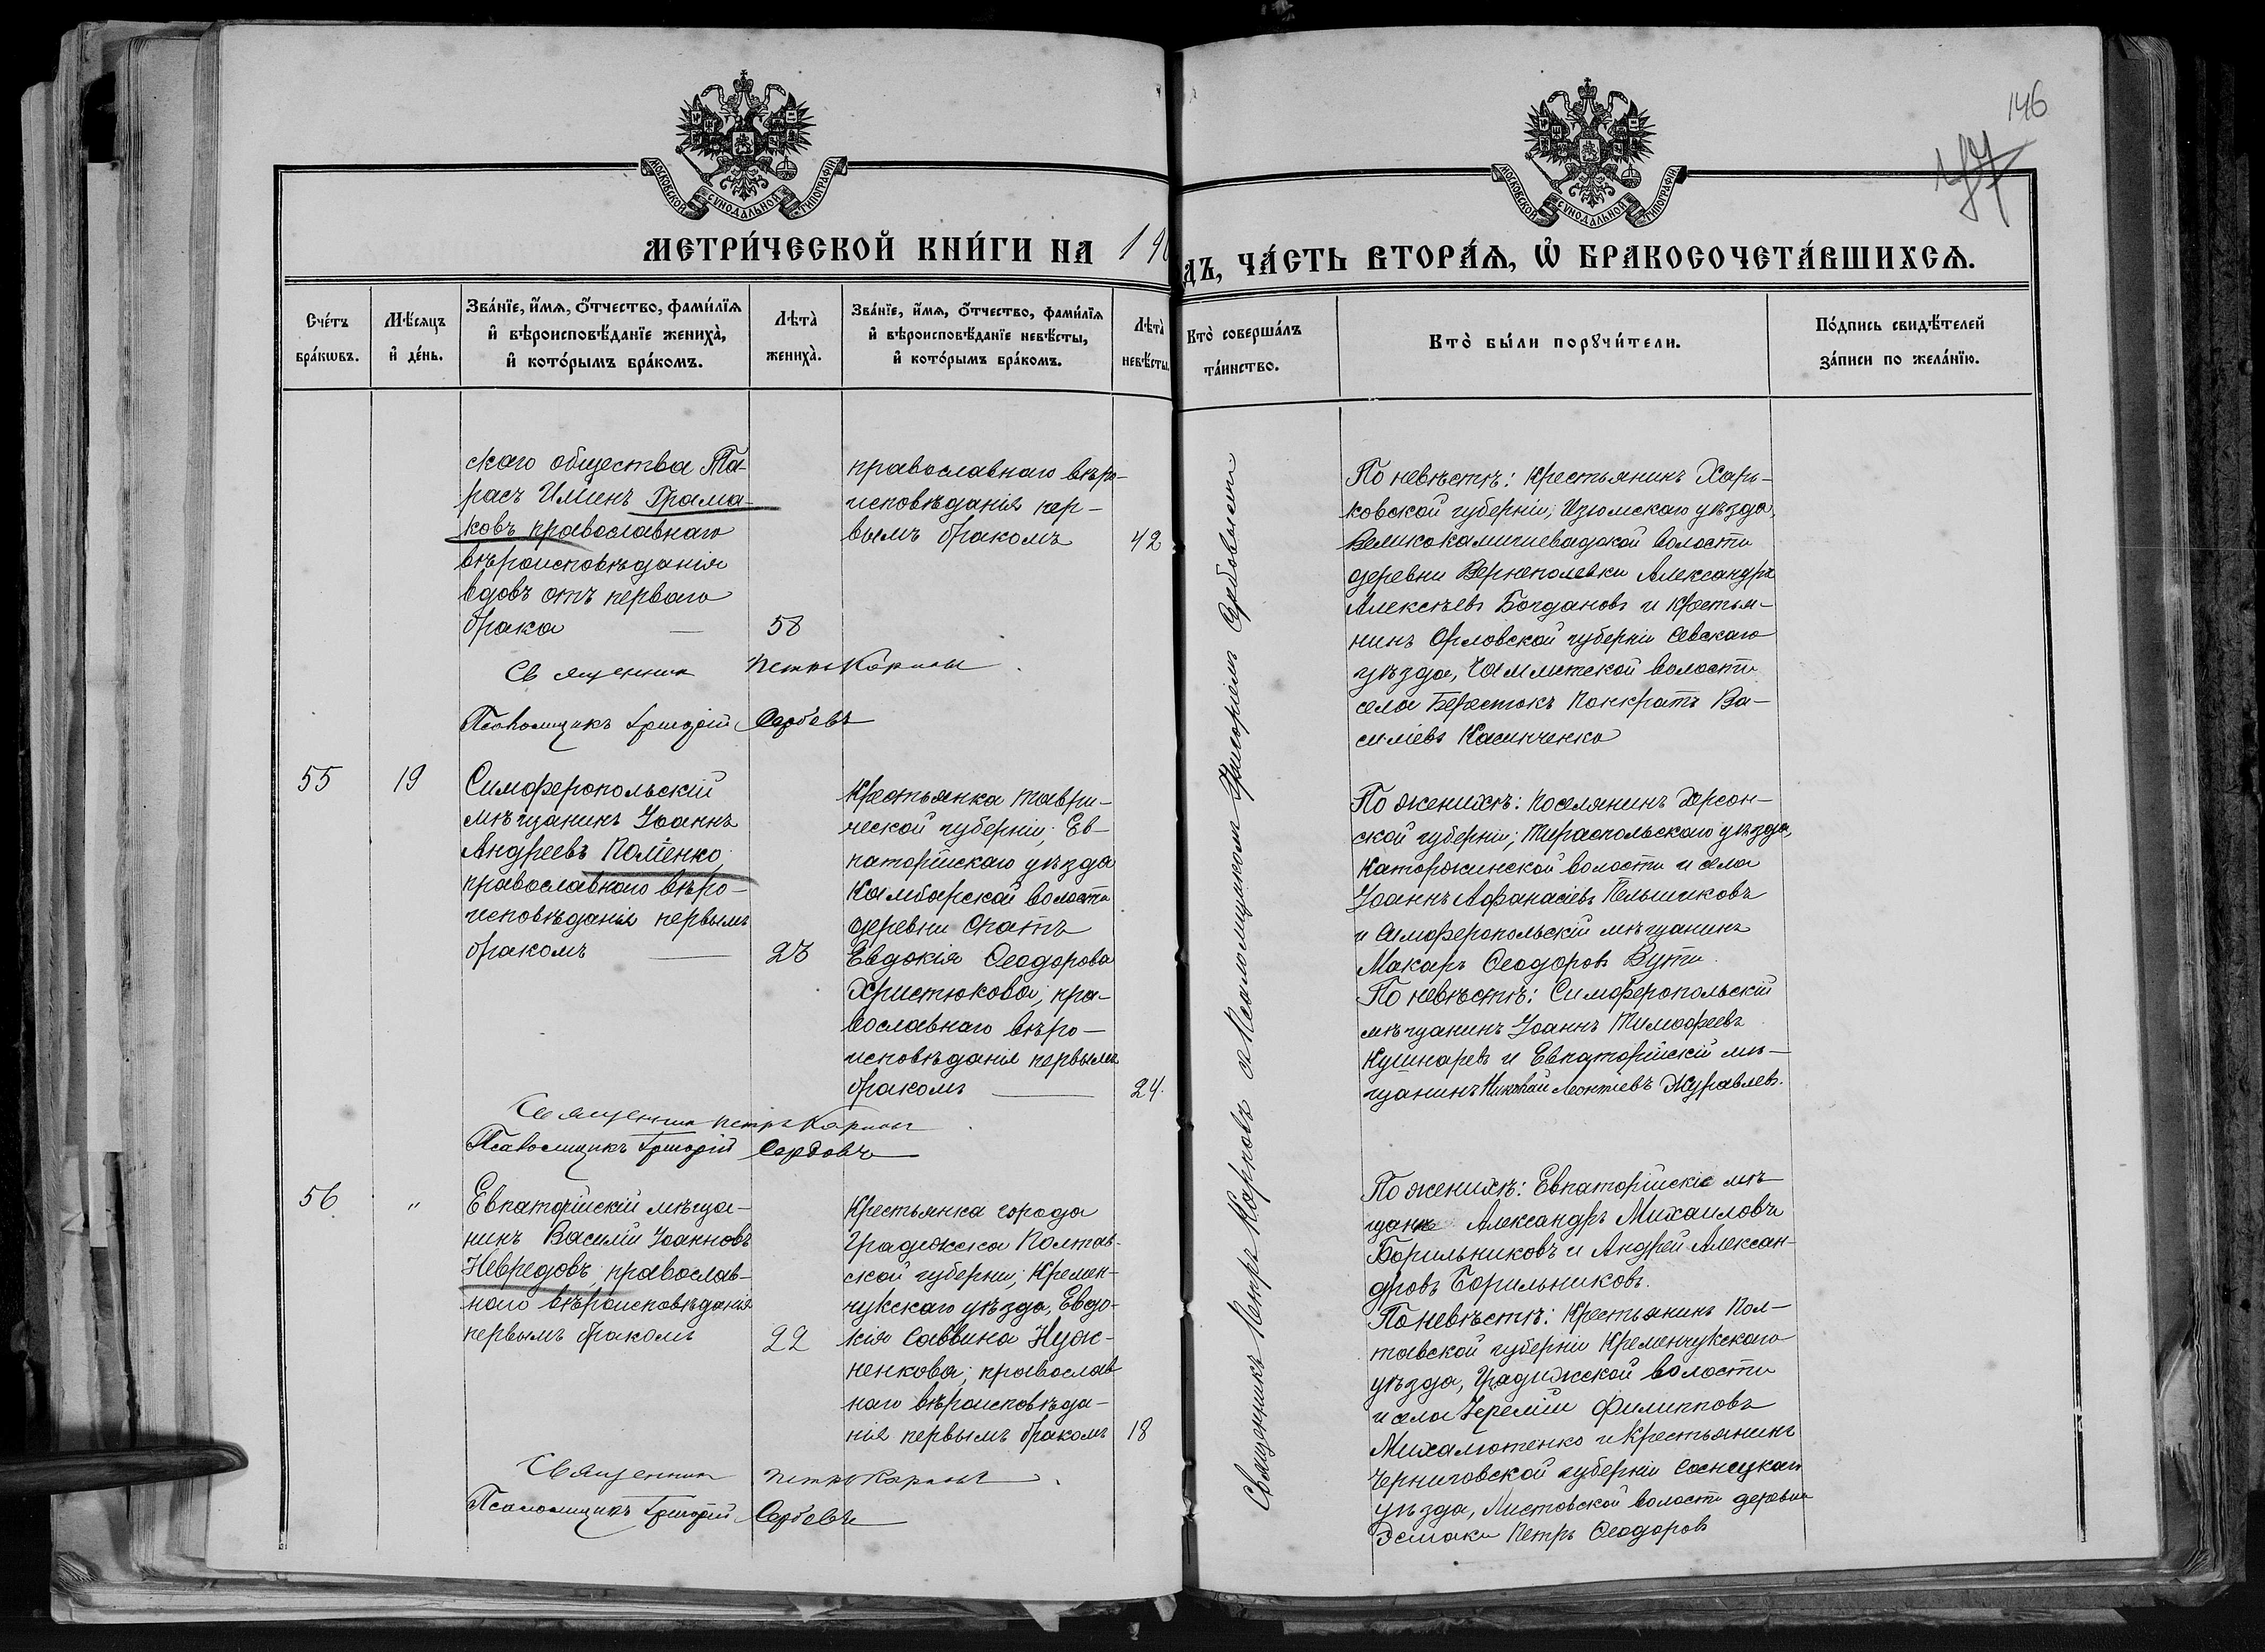 146
МОСКОВСКОЙ СѴНОДАЛЬНОЙ ТИПОГРАФІИ
МОСКОВСКОЙ СѴНОДАЛЬНОЙ ТИПОГРАФІИ
МЕТРИ́ЧЕСКОЙ КНИ́ГИ НА 19
ДЪ, ЧА́СТЬ ВТОРА́Ѧ, Ѽ БРАКОСОЧЕТА́ВШИХСѦ.
Сче́тъ бра́кѡвъ.
Мѣ́сяцъ и҆ де́нь.
Зва́нїе, и҆́мѧ, ѻ҆́тчество, фамн́лїѧ
и҆ вѣроисповѣ́данїе жениха̀,
и҆ кото́рымъ бра́комъ.
Лѣта̀ жениха̀.
Зва́нїе, и҆́мѧ, ѻ҆́тчество, фами́лїѧ
и҆ вѣроисповѣ́данїе невѣ́сты,
и҆ кото́рымъ бра́комъ.
Лѣта̀ невѣ́сты.
Кто̀ соверша́лъ та́инство.
Кто̀ бы́ли порꙋчи́тели.
По́дпись свидѣ́телей
за́писи по жела́нїю.
скаго общества Та-
расъ Илиенъ Грама-
ковъ православнаго
вѣроисповѣданія
вдовъ отъ перваго
брака — 58
православнаго вѣро-
исповѣданія пер-
вымъ бракомъ 42
Священник Петръ Карповъ
Псаломщикъ Григорій Сербовъ
По невѣстѣ: Крестьянинъ Харь-
ковской губерніи, Изюмскаго уѣзда,
Великокамишевадской волости
деревни Вернополевки Александръ
Алексѣевъ Богдановъ и крестья-
нинъ Орловской губерніи Севскаго
уѣзда, волости
села Берестокъ Панкратъ Ва-
силіевъ Касинченко
55
19
Симферопольскій
мѣщанинъ Іоаннъ
Андреевъ Поліенко,
православнаго вѣро-
исповѣданія первымъ
бракомъ — 23
Крестьянка Таври-
ческой губерніи, Ев-
паторійскаго уѣзда
Камбарской волости
деревни Спатъ
Евдокія Ѳеодорова
Христюкова, пра-
вославнаго вѣро-
исповѣданія первымъ
бракомъ — 24.
Священник Петръ Карповъ
Псаломщикъ Григорій Сербовъ
По женихѣ: Поселянинъ Херсон-
ской губерніи, Тираспольскаго уѣзда,
Каторжинской волости и села
Іоаннъ Афанасіевъ Пельшиковъ
и Симферопольскій мѣщанинъ
Макаръ Ѳеодоровъ Вути.
По невѣстѣ: Симферопольскій
мѣщанинъ Іоаннъ Тимофеевъ
Кушнаревъ и Евпаторійскій мѣ-
щанинъ Николай Леонтіевъ Журавлевъ.
56
"
Евпаторійскій мѣща-
нинъ Василій Іоанновъ
Невредовъ, православ-
наго вѣроисповѣданія
первымъ бракомъ 22
Крестьянка города
Градижска Полтав-
ской губерніи, Кремен-
чукскаго уѣзда, Евдо-
кія Саввина Нуж-
ненкова, православ-
наго вѣроисповѣда-
нія первымъ бракомъ 18
Священник Петръ Карповъ
Псаломщикъ Григорій Сербовъ
По женихѣ: Евпаторійскіе мѣ-
щане Александръ Михаиловъ
Борильниковъ и Андрей Алексан-
дровъ Борильниковъ.
По невѣстѣ: Крестьянинъ Пол-
тавской губерніи Кременчукскаго
уѣзда, Градижской волости
и села Іеремій Филипповъ
Михалютенко и крестьянинъ
Черниговской губерніи Сосницкаго
уѣзда, волости деревни
Петръ Ѳеодоровъ
Священникъ Петръ Карповъ съ Псаломщикомъ Григоріемъ Сербовымъ